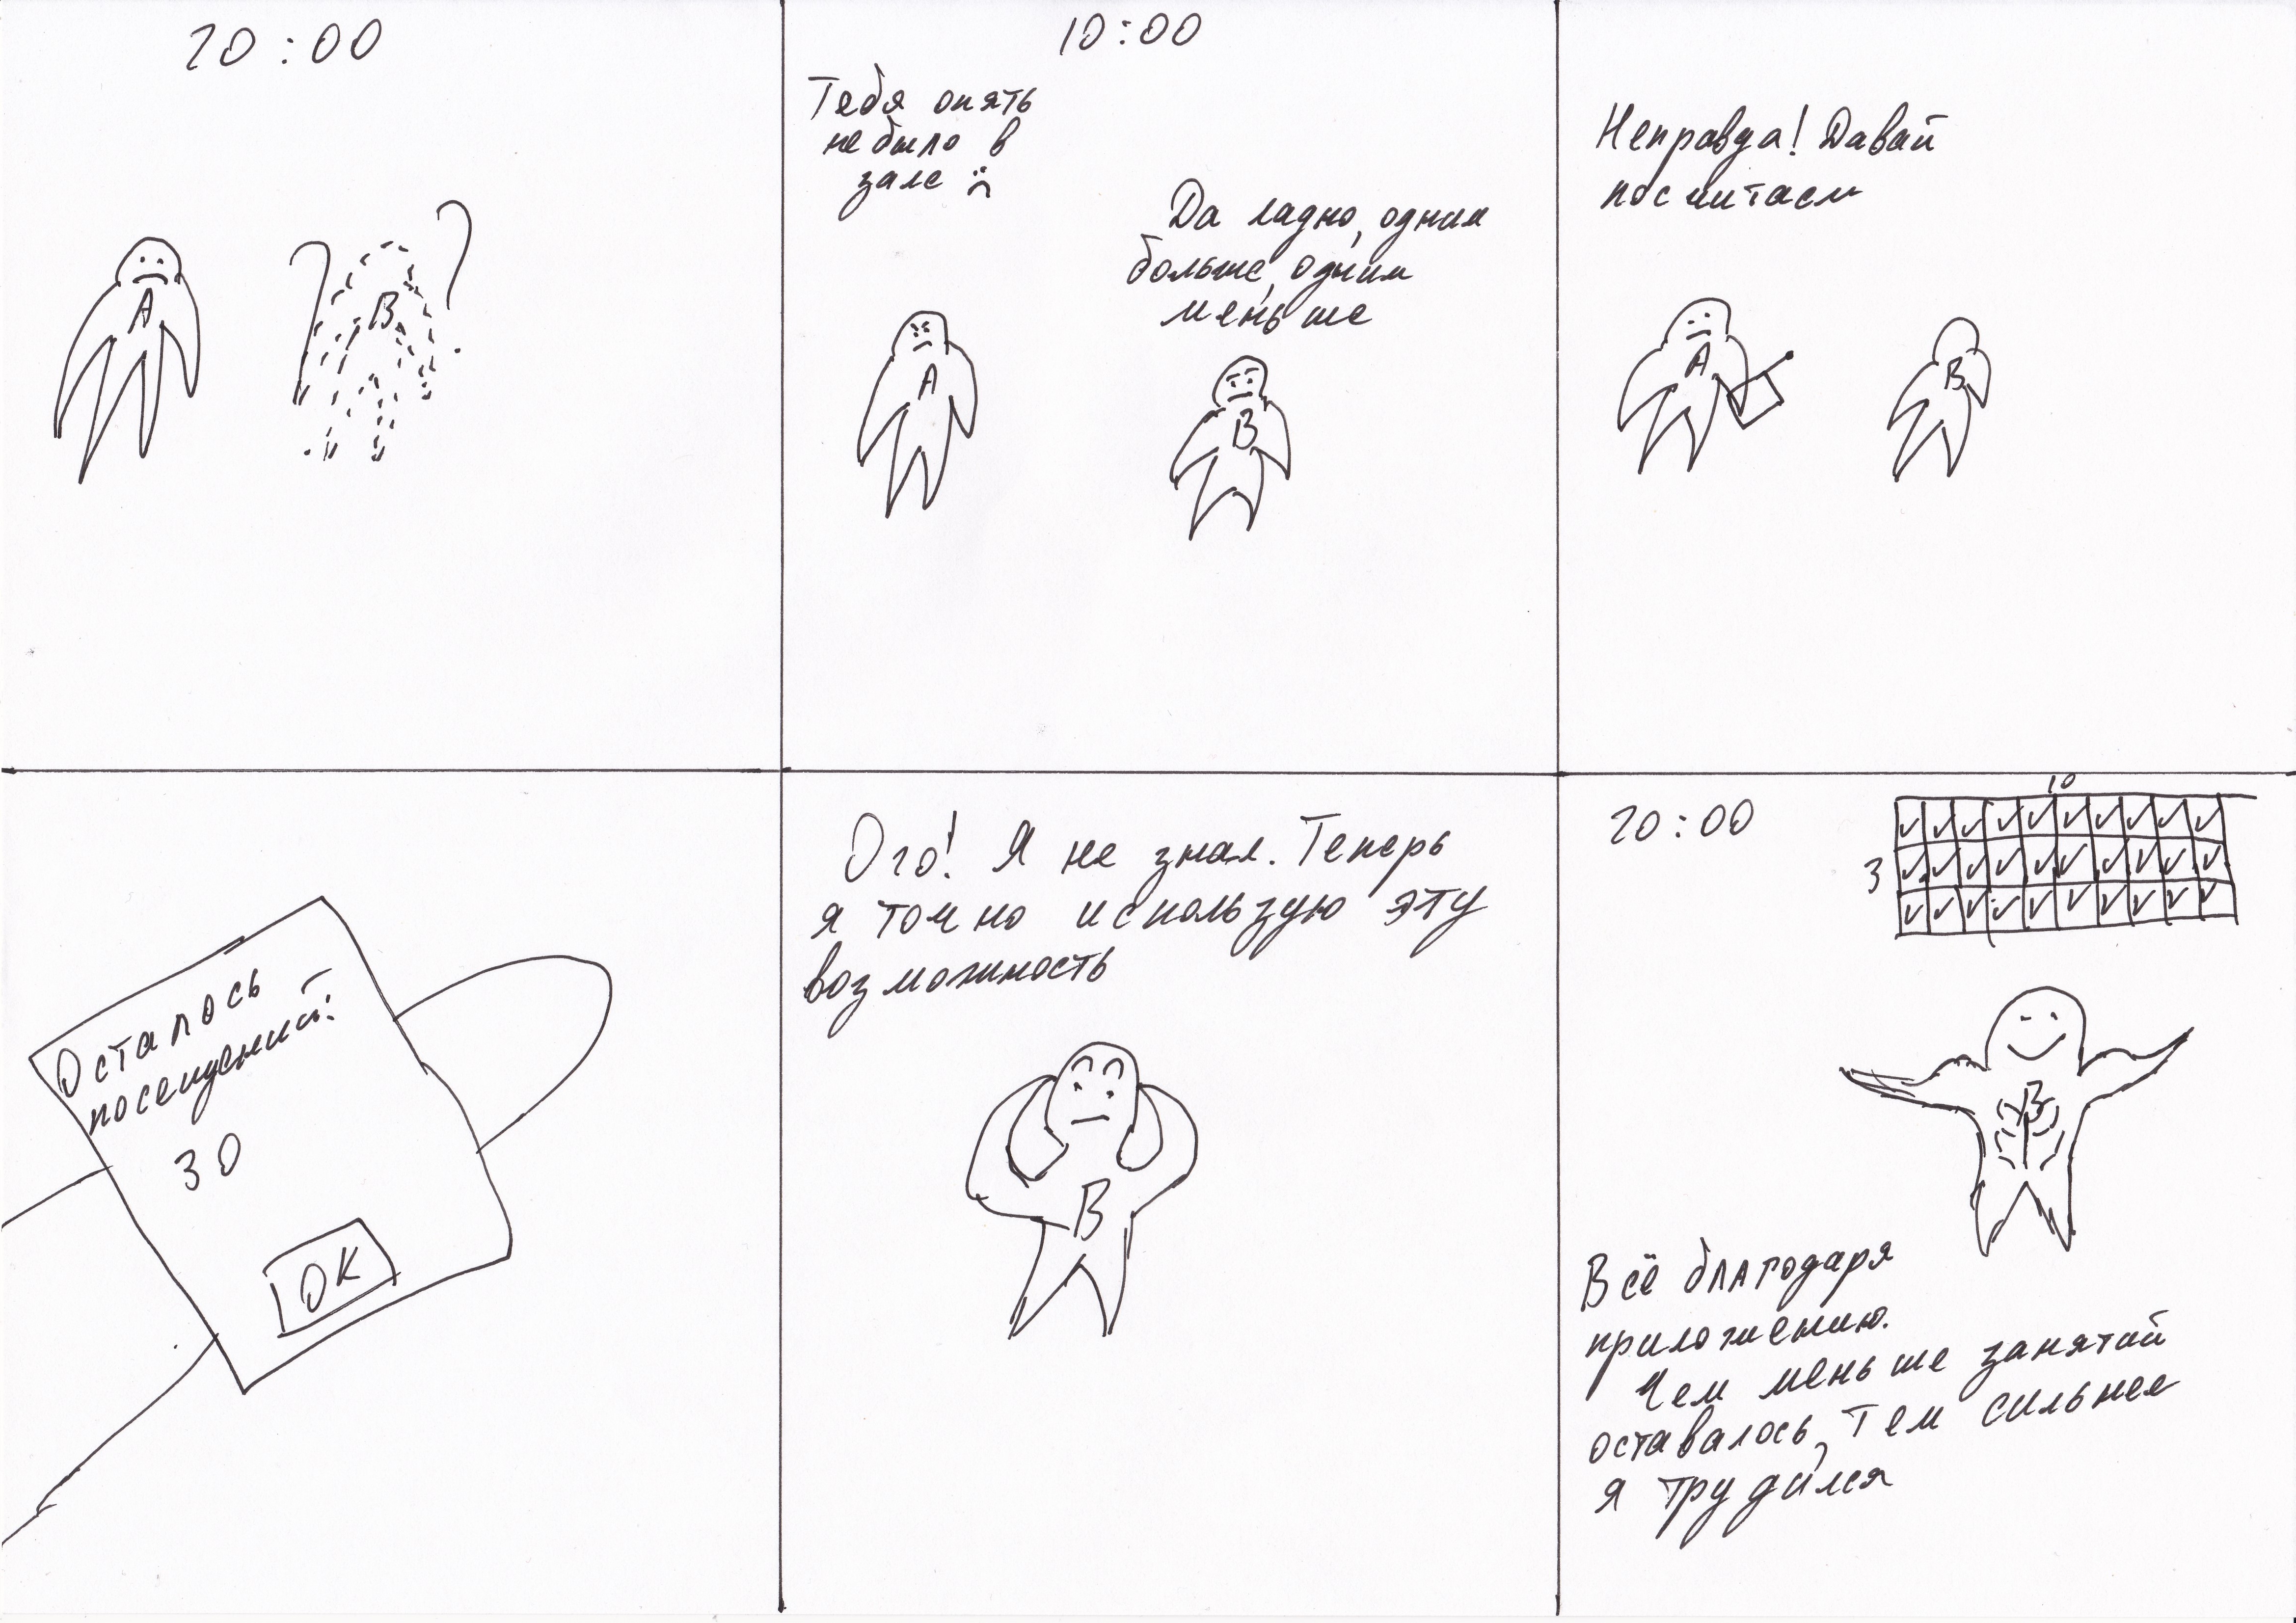 20:00
A
B
10:00
Тебя опять
не было в
зале :(
Да ладно, одним
больше, одним
меньше
A
B
Неправда! Давай
посчитаем
A
B
Осталось
посещений:
30
ОК
Ого! Я не знал. Теперь
я точно использую эту
возможность
B
20:00
10
3
B
Всё благодаря
приложению.
Чем меньше занятий
оставалось, тем сильнее
я трудился